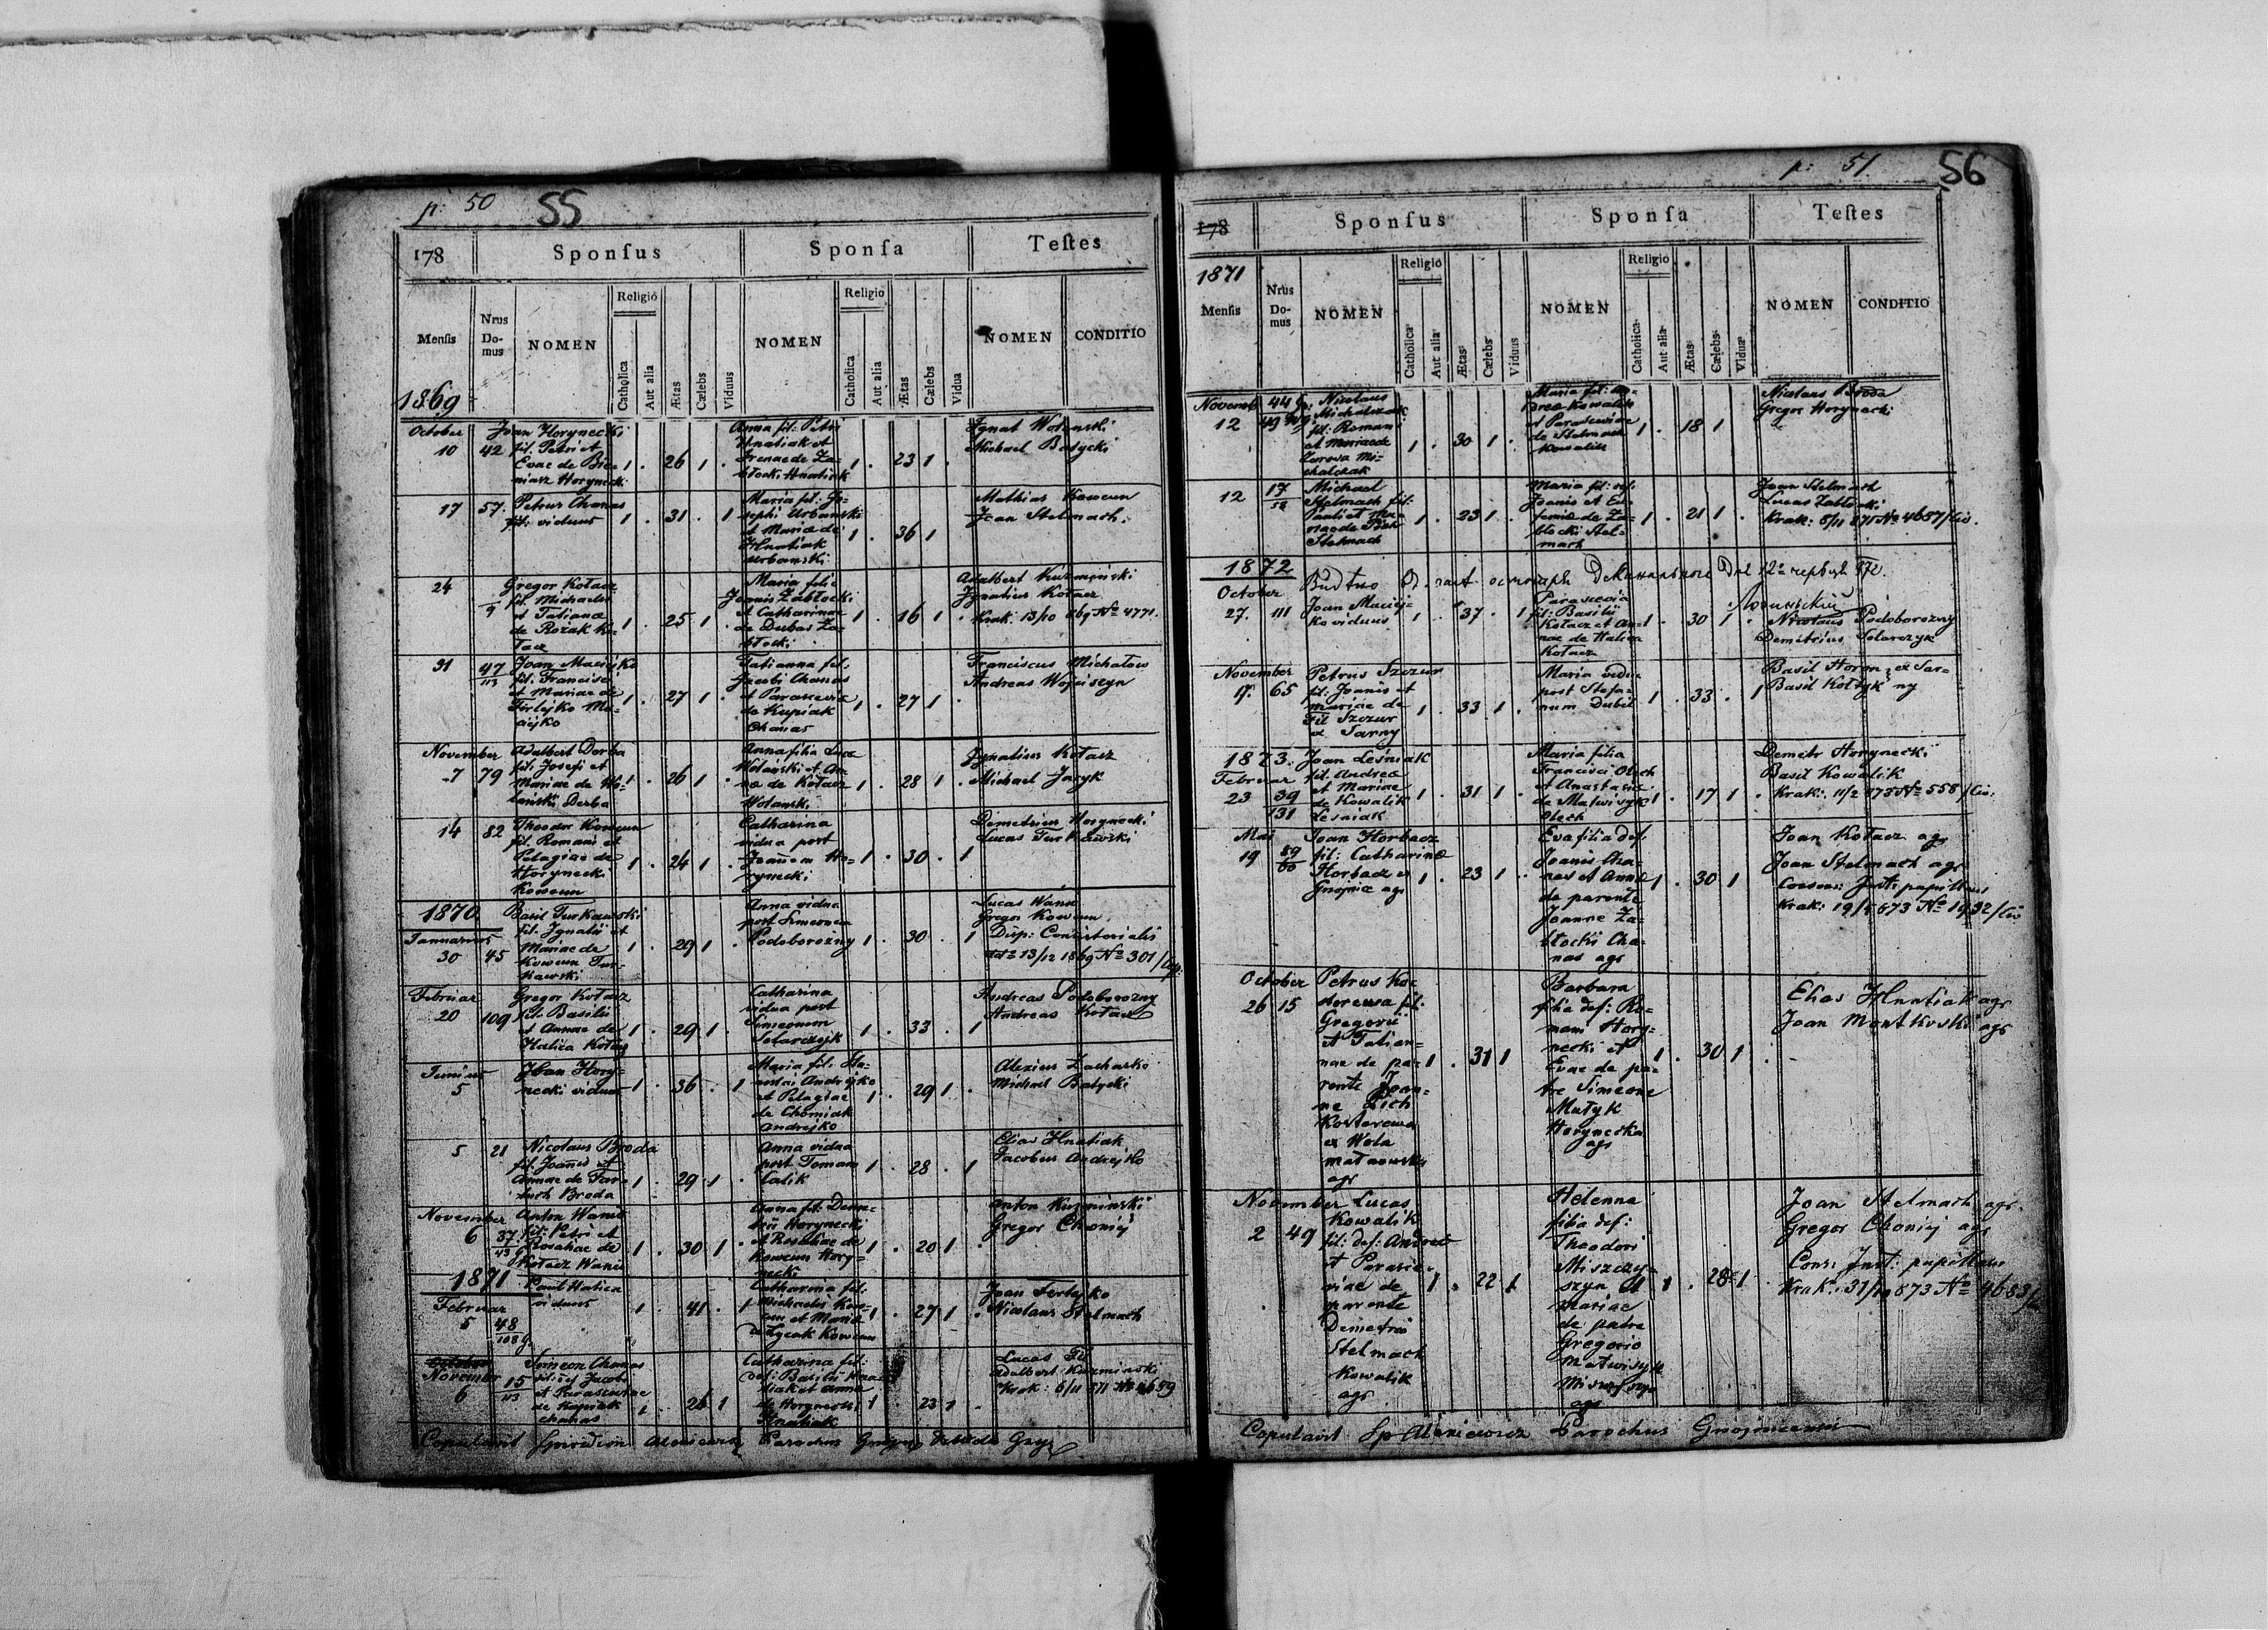 p. 50 55
178 Sponſus Sponſa Teſtes
Menſis Nrus Domus NOMEN Religio Catholica Aut alia Ætas Cælebs Viduus NOMEN Religio Catholica Aut alia Ætas Cælebs Vidua NOMEN CONDITIO
1869
October 10 42
Joan Horynecki
fil. Petri et
Evae de Bie-
niasz Horynecki
1 . 26 1 .
Anna fil. Petri
Hnatiak et
Irenae de Za-
błocki Hnatiak
1 . 23 1 .
Ignat Wolanski
Michael Batycki
17 57
Petrus Chanas
viduus
1 . 31 . 1
Maria fil: Jo-
sephi Urbanski
et Mariae de
Hnatiak
Urbanski
1 . 36 1
Mathias Koweun
Joan Stelmach.
24 9
Gregor Kołacz
fil. Michaelis
et Tatianae
de Rozak Ko-
łacz
1 . 25 1 .
Maria filia
Joannis Zabłocki
et Catharinae
de Dubas Za-
błocki
1 . 16 1 .
Adalbert Kuzminski
Ignatius Kołacz
Krak: 13/10 869 No 4771.
31 47/113
Joan Maciejko
fil. Francisci
et Mariae de
Firlejko Ma-
ciejko
1 . 27 1 .
Tatianna fil.
Jacobi Chanas
et Parasceviae
de Kupiak
Chanas
1 . 27 1 .
Franciscus Michałow
Andreas Wojciszyn
November 7 79
Adalbert Derba
fil. Josefi et
Mariae de Wo-
lański Derba
1 . 26 1 .
Anna filia Lucae
Wolański et An-
nae de Kołacz
Wolanski
1 . 28 1 .
Ignatius Kołacz
Michael Jacyk
14 82
Theodor Koweun
fil. Romani et
Pelagiae de
Horynecki
Koweun
1 . 24 1 .
Catharina
vidua post
Joannem Ho-
rynecki
1 . 30 . 1
Demetrius Horynecki
Lucas Turkawski
1870
Januarius 30 45
Basil Turkawski
fil. Ignatii et
Mariae de
Koweun Tur-
kawski
1 . 29 1 .
Anna vidua
post Simeonem
Podoborożny
1 . 30 . 1
Lucas Wanio
Gregor Koweun
Disp: Consistorialis
13/12 1869 No 301
Februar 20 109
Gregor Kołacz
fil. Basilii
et Annae de
Halica Kołacz
1 . 29 1 .
Catharina
vidua post
Simeonem
Solarczyk
1 . 33 . 1
Andreas Podoborożny
Andreas Kołacz
Junius 5
Joan Hory-
necki viduus
1 . 36 . 1
Maria fil. Ha-
Andrejko
et Pelagiae
de Chomiak
Andrejko
1 . 29 1 .
Alexius Zacharko
Michael Batycki
5 21
Nicolaus Broda
fil. Joannis et
Annae de Tar-
Broda
1 . 29 1 .
Anna vidua
post Tomam
Calik
1 . 28 . 1
Elias Hnatiak
Jacobus Andrejko
November 6 37/43
Anton Wanio
fil. Petri et
Rosaliae de
Kołacz Wanio
1 . 30 1 .
Anna fil: Deme-
trii Horynecki
et Rosaliae de
Koweun Hory-
necki
1 . 20 1 .
Anton Kuzminski
Gregor Choniej
1871
Februar 5 48/108
Paul Halica
viduus
1 . 41 . 1
Catharina fil.
Michaelis Kow-
eun et Mariae
Koweun
1 . 27 1 .
Joan Ferlejko
Nicolaus Stelmach
November 6 15/113
Simeon Chanas
fil: Jacobi
et Parasceviae
de Kupiak
Chanas
1 . 26 1
Catharina fil:
def: Basilii Hna-
tiak et Annae
de Horynecki
Hnatiak
1 . 23 1 .
Lucas Fil
Adalbert Kuzminski
Krak: 6/11 871
Copulavit Spiridion Alexiewicz Parochus
p: 51. 56
178 Sponſus Sponſa Teſtes
1871
Menſis Nrus Domus NOMEN Religio Catholica Aut alia Ætas Cælebs Viduus NOMEN Religio Catholica Aut alia Ætas Cælebs Vidua NOMEN CONDITIO
Novemb 12 44 49
Nicolaus
Michalczak
fil: Romani
et Mariae de
Michalczak
1 . 30 1 .
Maria fil: An-
dreae Kowalik
et Parasceviae
de Stelmach
Kowalik
1 . 18 1
Nicolaus Broda
Gregor Horynecki
12 17
Michael
Stelmach fil:
Pauli et Ma-
riae de
Stelmach
1 . 23 1 .
Maria fil: def.
Joanis et Eu-
femiae de Za-
błocki Stel-
mach
1 . 21 1 .
Joan Stelmach
Lucas Zabłocki
Krak: 6/11 871 No 4657/Civ.
1872
October 27. 111
Joan Maciej-
ko viduus
1 . 37 . 1
Parascevia
fil: Basilii
Kołacz et An-
nae de Halica
Kołacz
1 . 30 1 .
Podoborożny
Demetrius Solarczyk
November 17. 65
Petrus Szczur
fil: Joannis et
Mariae de
Fil Szczur
ex Sarny
1 . 33 1 .
Maria vidu-
post Stefa-
num Dubil
1 . 33 . 1
Basil Horon ex Sar-
Basil Kołtyk ny
1873.
Februar 23 39/131
Joan Leśniak
fil. Andreae
et Mariae
de Kowalik
Leśniak
1 . 31 1 .
Maria filia
Francisci Olech
et Anastasiae
de Matwisyk
Olech
1 . 17 1 .
Demetr Horynecki
Basil Kowalik
Krak: 11/2 873 No 558/Civ.
Mai 19 89/60
Joan Horbacz
fil: Catharinae
Horbacz ex
Gnojnice agr
1 . 23 1 .
Eva filia def.
Joannis Cha-
nas et Annae
de parente
Joanne Za-
błocki Cha-
nas agr
1 . 30 1
Joan Kołacz agr
Joan Stelmach agr
Consens: Inst: pupillaris
Krak: 19/5 873 No 1932/Civ
October 26 15
Petrus Ko-
storewa fil.
Gregorii
et Tatian-
nae de pa-
rente Joan-
ne Lich
Kostorewa
ex Wola
agr
1 . 31 1
Barbara
filia def: Ro-
mani Hory-
necki et
Evae de pa-
tre Simeone
Matyk
Horynecka
agr
1 . 30 1 .
Elias Hnatiak agr
Joan Montkoski agr
November 2 49
Lucas
Kowalik
fil: def: Andreae
et Parasce-
viae de
parente
Demetrio
Stelmach
Kowalik
agr
1 . 22 1
Helenna
filia def:
Theodori
Miszczy-
szyn et
Mariae
de patre
Gregorio
Matwisyk
agr
1 . 28 1
Joan Stelmach agr.
Gregor Choniej agr
Cons: Inst: pupillaris
Krak: 31/10 873 No 4683/
Copulavit Sp Alexiewicz Parochus Gnojnicensis